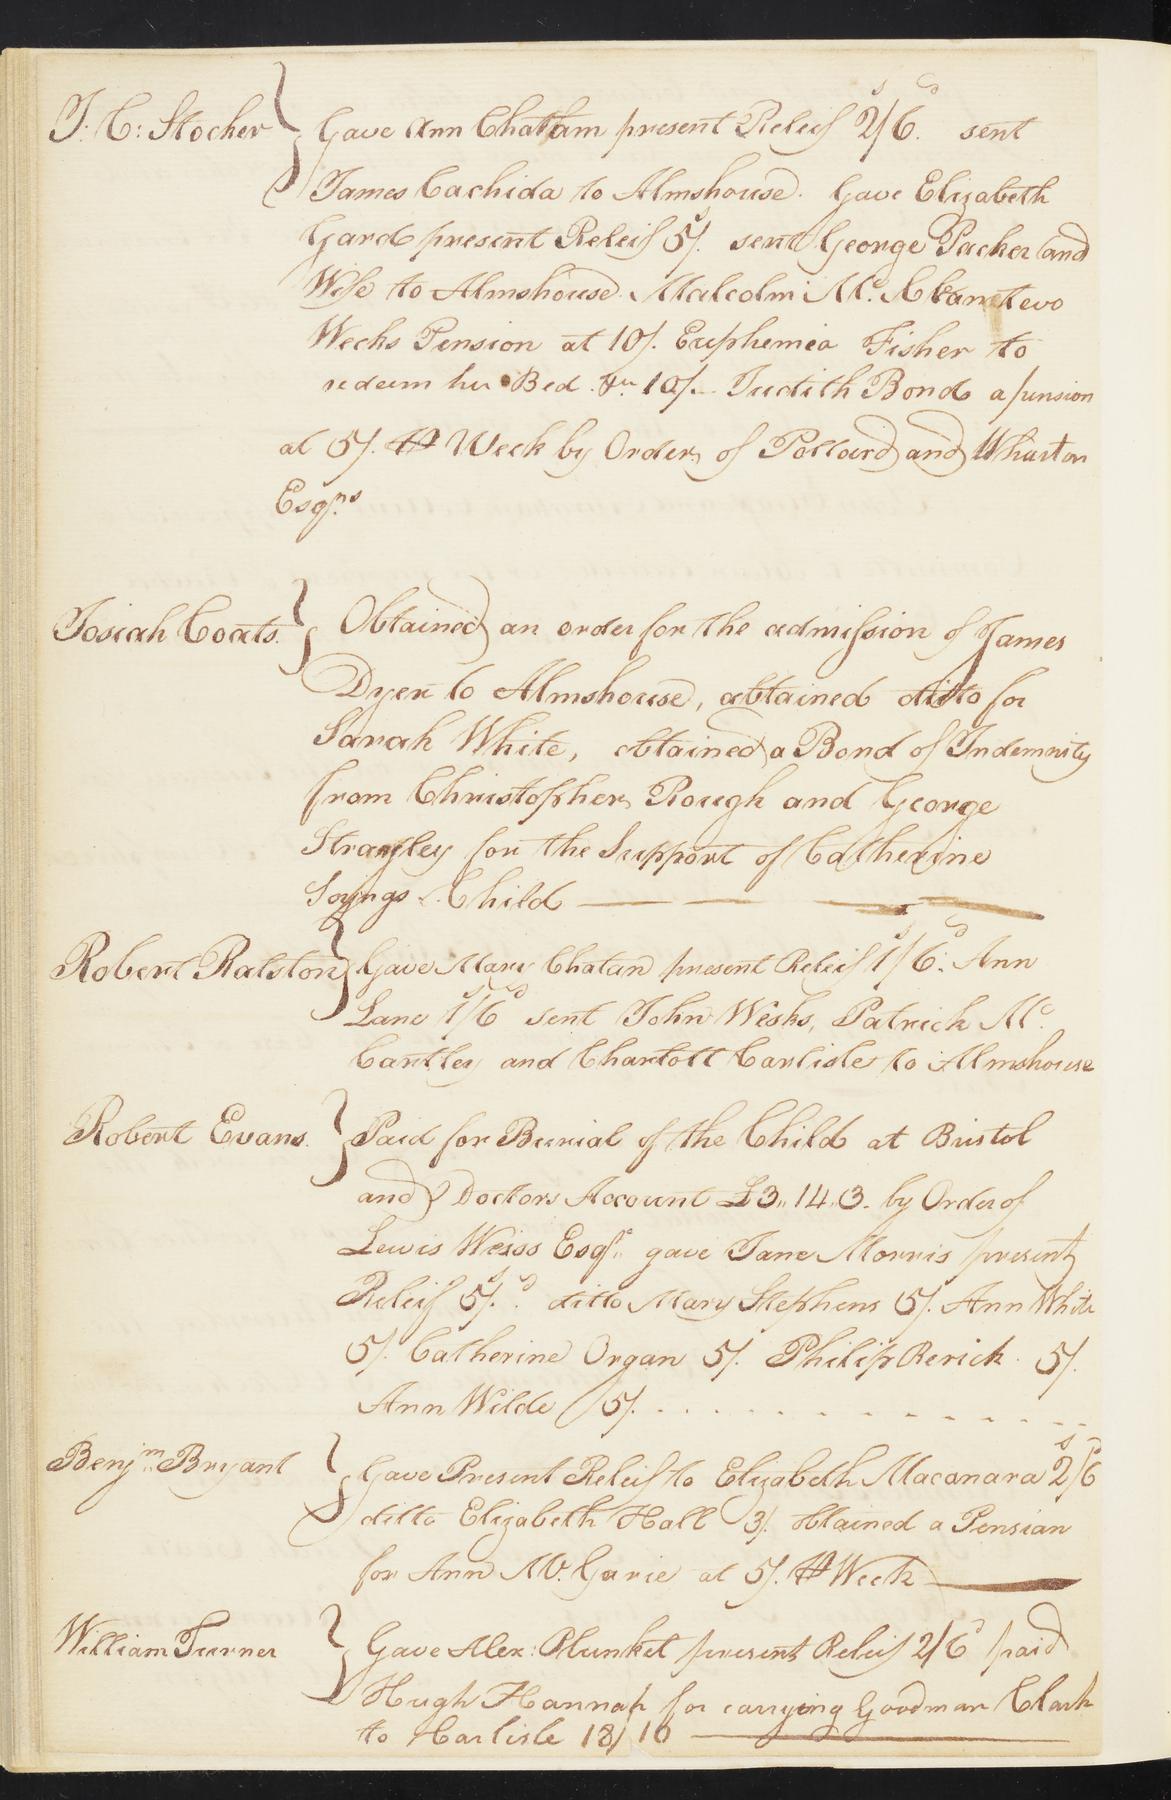 J: C: Stocker } Gave Ann Chattam present Releif 2/6. sent
James Cachida to Almshouse. Gave Elizabeth
Gard present Releif 5/. sent George Packer and
Wife to Almshouse. Malcolm Mc. two
Weeks Pension at 10/. Euphemia Fisher to
redeem her Bed &c 10/. Judith Bond a pension
at 5/. ⅌ Week by Order of Pollard and Wharton
Esqrs.
Josiah Coats. } Obtained an order for the admission of James
Dyer to Almshouse, obtained ditto for
Sarah White, obtained a Bond of Indemnity
from Christopher Rough and George
Strangley for the Support of Catherine
Child
Robert Ralston } Gave Mary Chatan present Releif 1/6. Ann
Lane 1/6 sent John Weeks, Patrick Mc.
Cantley and Charlott Carlisle to Almshouse
Robert Evans. } Paid for Burial of the Child at Bristol
and Doctors Account £3,, 14,, 3. by Order of
Lewis Weiss Esqr. gave Jane Morris present
Releif 5/. ditto Mary Stephens 5/. Ann White
5/. Catherine Organ 5/. Philip Rerick 5/.
Ann Wilde 5/.
Benjm. Bryant } Gave Present Releif to Elizabeth Macanara 2/6
ditto Elizabeth Hall 3/. obtained a Pension
for Ann Mc. Garie at 5/. ⅌ Week
William Turner } Gave Alex: Plunket present Releif 2/6 paid
Hugh Hannah for carrying Goodman Clark
to Carlisle 18/10